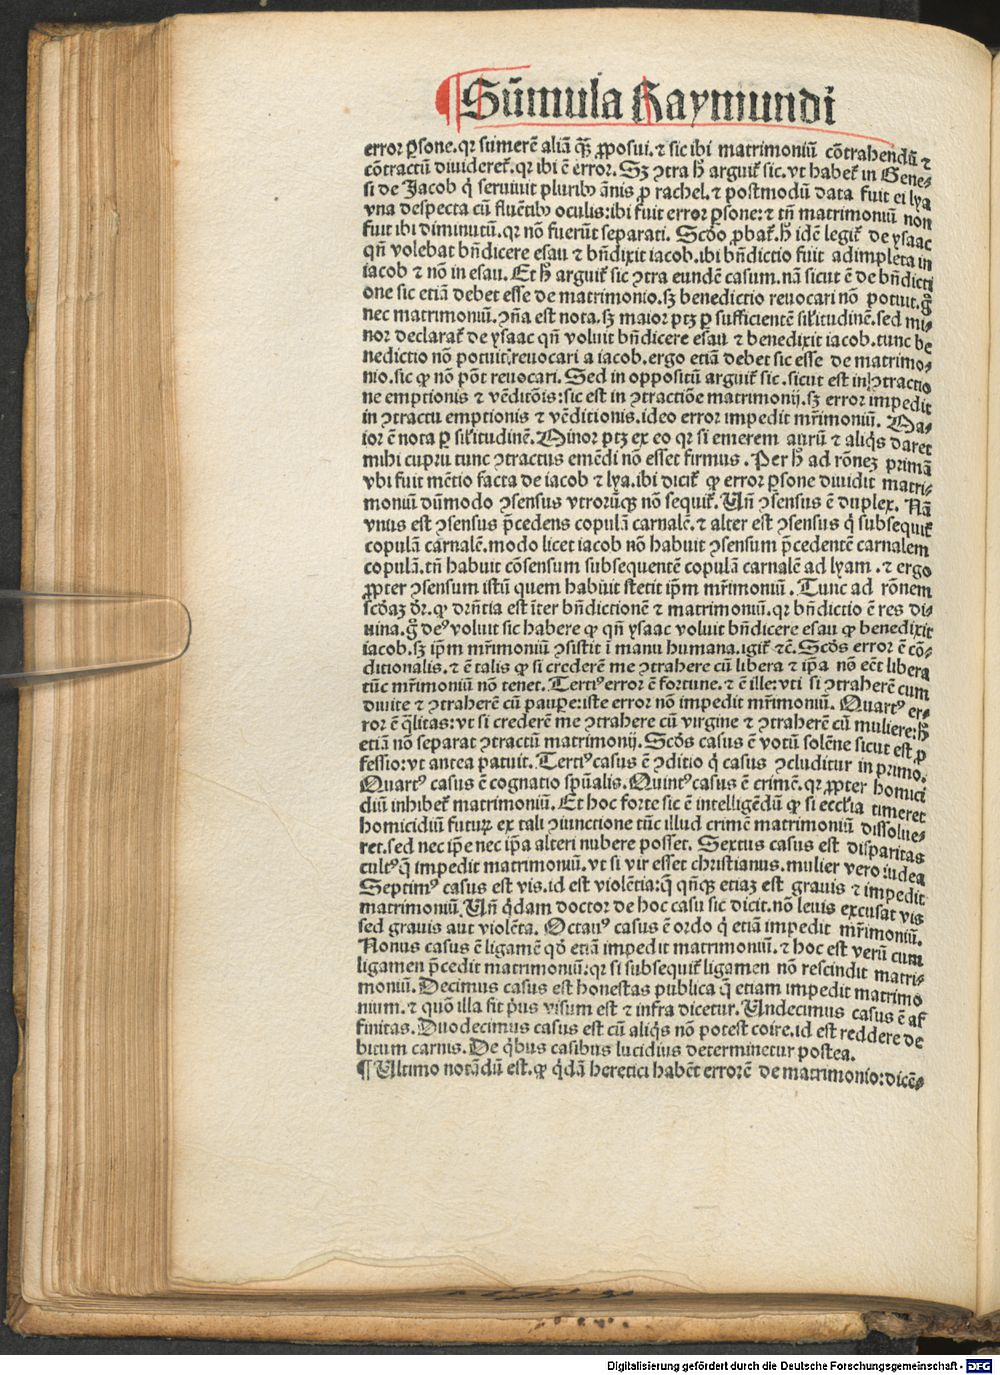 ¶ Sūmula Raymundi
error ꝑsone.qꝛ sumerē aliā qȝ̄ ꝓposui.⁊ sic ibi matrimoniū cōtrahendū ⁊
cōtractū diuidereť.qꝛ ibi ē error. Sȝ ꝯtra h̄ arguiť sic.vt habeť in Gene⸗
si de Jacob q̇ seruiuit pluribꝰ ānis ꝓ rachel.⁊ postmodū data fuit ei lya
vna despecta cū fluētibꝰ oculis:ibi fuit error ꝑsone:⁊ tn̄ matrimoniū non
fuit ibi diminutū.qꝛ nō fuerūt separati. Scd̓o ꝓbať.h̄ idē legiť de ysaac
qn̄ volebat bn̄dicere esau ⁊ bn̄dixit iacob.ibi bn̄dictio fuit adimpleta in
iacob ⁊ nō in esau. Et h̄ arguiť sic ꝯtra eundē casum.nā sicut ē de bn̄dicti
one sic etiā debet esse de matrimonio.sȝ benedictio reuocari nō potuit.g̊
nec matrimoniū.ꝯn̄a est nota.sȝ maior ptȝ ꝑ sufficientē sil̓itudinē.sed mi⸗
nor declarať de ysaac qn̄ voluit bn̄dicere esau ⁊ benedixit iacob.tunc be
nedictio nō potuit reuocari a iacob.ergo etiā debet sic esse de matrimo⸗
nio.sic ꝙ nō pōt reuocari. Sed in oppositū arguiť sic.sicut est in ꝯtractio
ne emptionis ⁊ vēditōis:sic est in ꝯtractiōe matrimonij.sȝ error impedit
in ꝯtractu emptionis ⁊ vēditionis.ideo error impedit mr̄imoniū. Ma⸗
ior ē nota ꝑ sil̓itudinē. Minor ptȝ ex eo qꝛ si emerem aurū ⁊ aliq̇s daret
mihi cuprū tunc ꝯtractus emēdi nō esset firmus. Per h̄ ad rōneȝ primā
vbi fuit mētio facta de iacob ⁊ lya.ibi diciť ꝙ error ꝑsone diuidit matri⸗
moniū dūmodo ꝯsensus vtroꝛūqȝ nō sequiť. Un̄ ꝯsensus ē duplex. Nā
vnus est ꝯsensus p̄cedens copulā carnalē.⁊ alter est ꝯsensus q̇ subsequiť
copulā carnalē.modo licet iacob nō habuit ꝯsensum p̄cedentē carnalem
copulā.tn̄ habuit cōsensum subsequentē copulā carnalē ad lyam.⁊ ergo
ꝓpter ꝯsensum istū quem habuit stetit ip̄m mr̄imoniū. Tunc ad rōnem
scd̓aȝ dr̄.ꝙ drn̄tia est īter bn̄dictionē ⁊ matrimoniū.qꝛ bn̄dictio ē res di⸗
uina.g̊ deꝰ voluit sic habere ꝙ qn̄ ysaac voluit bn̄dicere esau ꝙ benedixit
iacob.sȝ ip̄m mr̄imoniū ꝯsistit ī manu humana.igiť ⁊c̄. Scd̓s error ē cō⸗
ditionalis.⁊ ē talis ꝙ si crederē me ꝯtrahere cū libera ⁊ ip̄a nō eēt libera
tūc mr̄imoniū nō tenet. Tertiꝰ error ē fortune.⁊ ē ille:vti si ꝯtraherē cum
diuite ⁊ ꝯtraherē cū pauꝑe:iste error nō impedit mr̄imoniū. Quartꝰ er⸗
ror ē q̄litas:vt si crederē me ꝯtrahere cū virgine ⁊ ꝯtraherē cū muliere:h̄
etiā nō separat ꝯtractū matrimonij. Scd̓s casus ē votū solēne sicut est ꝓ
fessio:vt antea patuit. Tertiꝰ casus ē ꝯditio q̇ casus ꝯcluditur in primo.
Quartꝰ casus ē cognatio spūalis. Quintꝰ casus ē crimē.qꝛ ꝓpter homici
diū inhibeť matrimoniū. Et hoc forte sic ē intelligēdū ꝙ si eccl̓ia timeret
homicidiū futuꝝ ex tali ꝯiunctione tūc illud crimē matrimoniū dissolue⸗
ret.sed nec ip̄e nec ip̄a alteri nubere posset. Sextus casus est disparitas
cultꝰ q̄ impedit matrimoniū.vt si vir esset christianus.mulier vero iudea
Septimꝰ casus est vis.id est violētia:q̄ qn̄qȝ etiaȝ est grauis ⁊ impedit
matrimoniū. Un̄ q̇dam doctor de hoc casu sic dicit.nō leuis excusat vis
sed grauis aut violēta. Octauꝰ casus ē ordo q̇ etiā impedit mr̄imoniū.
Nonus casus ē ligamē qd̓ etiā impedit matrimoniū.⁊ hoc est verū cum
ligamen p̄cedit matrimoniū:qꝛ si subsequiť ligamen nō rescindit matri⸗
moniū. Decimus casus est honestas publica q̄ etiam impedit matrimo
nium.⁊ quō illa sit pͥus visum est ⁊ infra dicetur. Undecimus casus ē af
finitas. Duodecimus casus est cū aliq̇s nō potest coire.id est reddere de
bitum carnis. De q̇bus casibus lucidius determinetur postea.
¶ Ultimo notādū est.ꝙ q̇dā heretici habēt errorē de matrimonio:dicē⸗
Digitalisierung gefördert durch die Deutsche Forschungsgemeinschaft - DFG